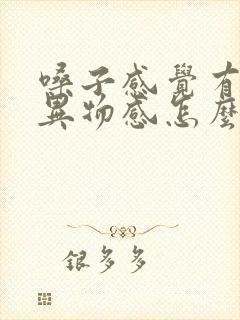 嗓子感覺有
異物感怎麼
銀多多